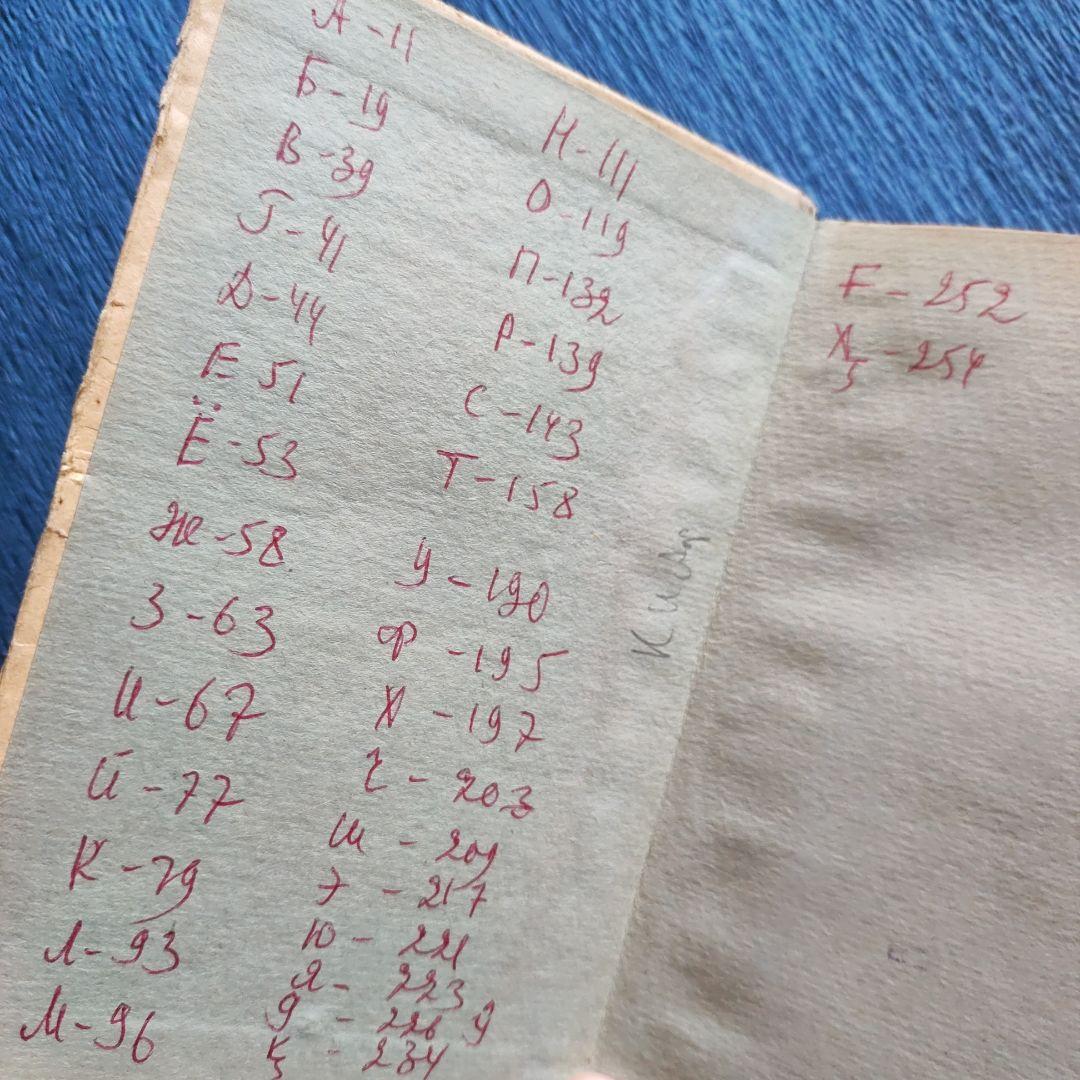 А - 11
Б - 19
В - 39
Г - 41
Д - 44
Е 51
Ё - 53
Ж - 58
З - 63
И - 67
Й - 77
К - 79
Л - 93
М - 96
Н - 111
О - 119
П - 132
Р - 139
С - 143
Т - 158
У - 190
Ф - 195
Х - 197
Ч - 203
Ш - 209
Э - 217
Ю - 221
Я - 223
У - 226 У
Қ - 234
Ғ - 252
Ҳ - 254